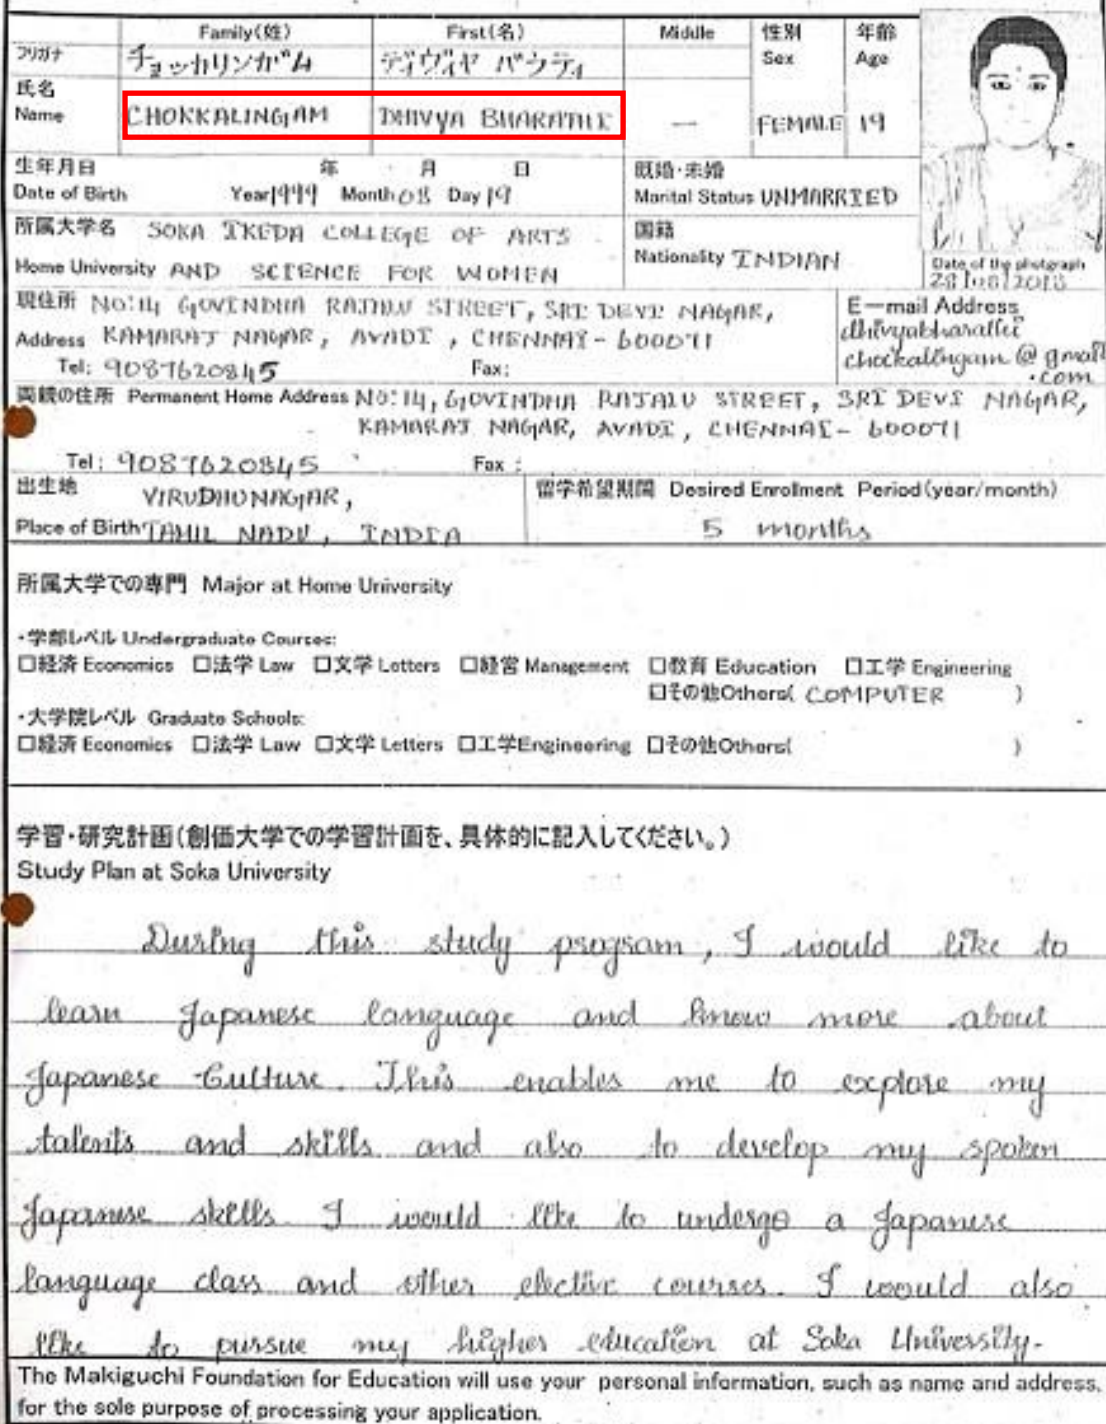 Family(姓) First(名) Middle 性別 年齢
フリガナ チョッカリンガム ディヴィヤ バラティ Sex Age
氏名
Name CHOKKALINGAM DHIVYA BHARATHI — FEMALE 19
生年月日 年 月 日 既婚・未婚
Date of Birth Year1999 Month08 Day19 Marital Status UNMARRIED
所属大学名 SOKA IKEDA COLLEGE OF ARTS 国籍
Home University AND SCIENCE FOR WOMEN Nationality INDIAN
Date of the photgraph
現住所 NO:14 GOVINDHA RAJALU STREET, SRI DEVI NAGAR, E-mail Address
Address KAMARAJ NAGAR, AVADI, CHENNAI-600071 dhivyabharathi
Tel: 9087620845 Fax: chockalingam@gmail
.com
両親の住所 Permanent Home Address NO:14, GOVINDHA RAJALU STREET, SRI DEVI NAGAR,
KAMARAJ NAGAR, AVADI, CHENNAI-600071
Tel: 9087620845 Fax:
出生地 VIRUDHUNAGAR, 留学希望期間 Desired Enrollment Period(year/month)
Place of Birth TAMIL NADU, INDIA 5 months
所属大学での専門 Major at Home University
・学部レベル Undergraduate Courses:
□経済 Economics □法学 Law □文学 Letters □経営 Management □教育 Education □工学 Engineering
□その他Others( COMPUTER )
・大学院レベル Graduate Schools:
□経済 Economics □法学 Law □文学 Letters □工学Engineering □その他Others( )
学習・研究計画(創価大学での学習計画を、具体的に記入してください。)
Study Plan at Soka University
During this study program, I would like to
learn Japanese language and know more about
Japanese Culture. This enables me to explore my
talents and skills and also to develop my spoken
Japanese skills. I would like to undergo a Japanese
language class and other elective courses. I would also
like to pursue my higher education at Soka University.
The Makiguchi Foundation for Education will use your personal information, such as name and address,
for the sole purpose of processing your application.